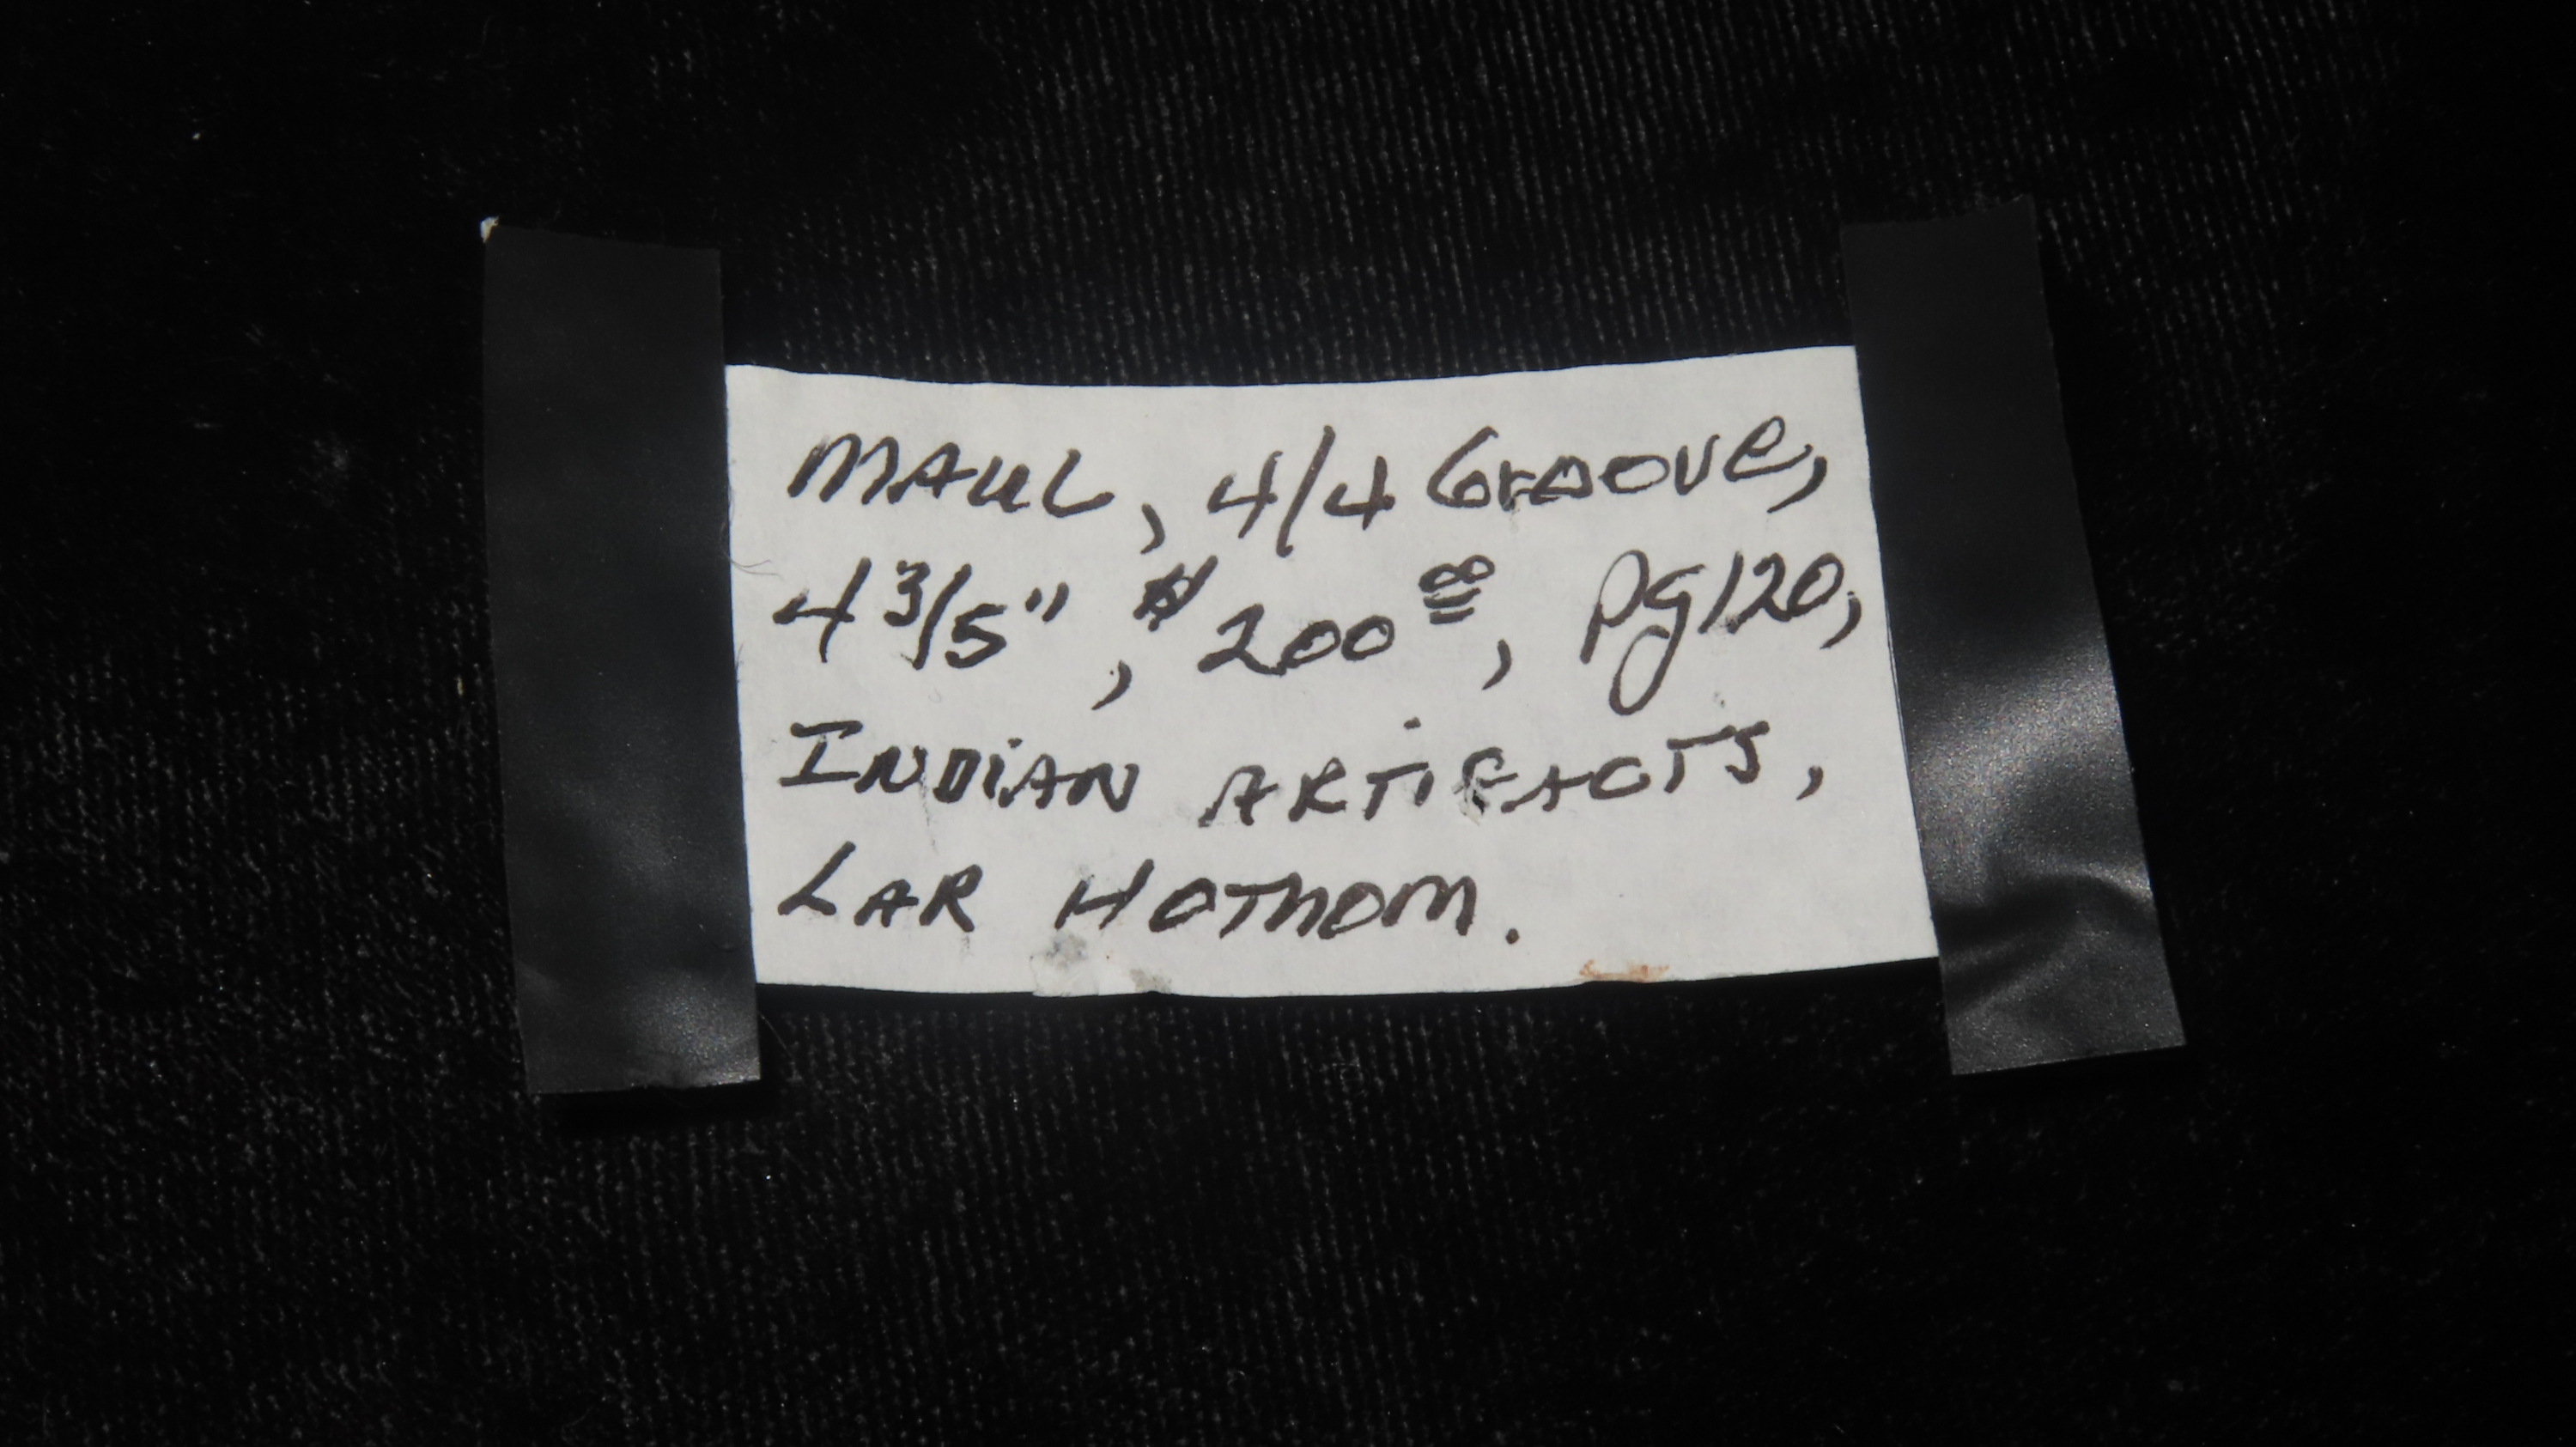 MAUL, 4/4 Groove,
4 3/5", $200 00, pg 120,
INDIAN ARTIFACTS,
LAR HOTHOM.